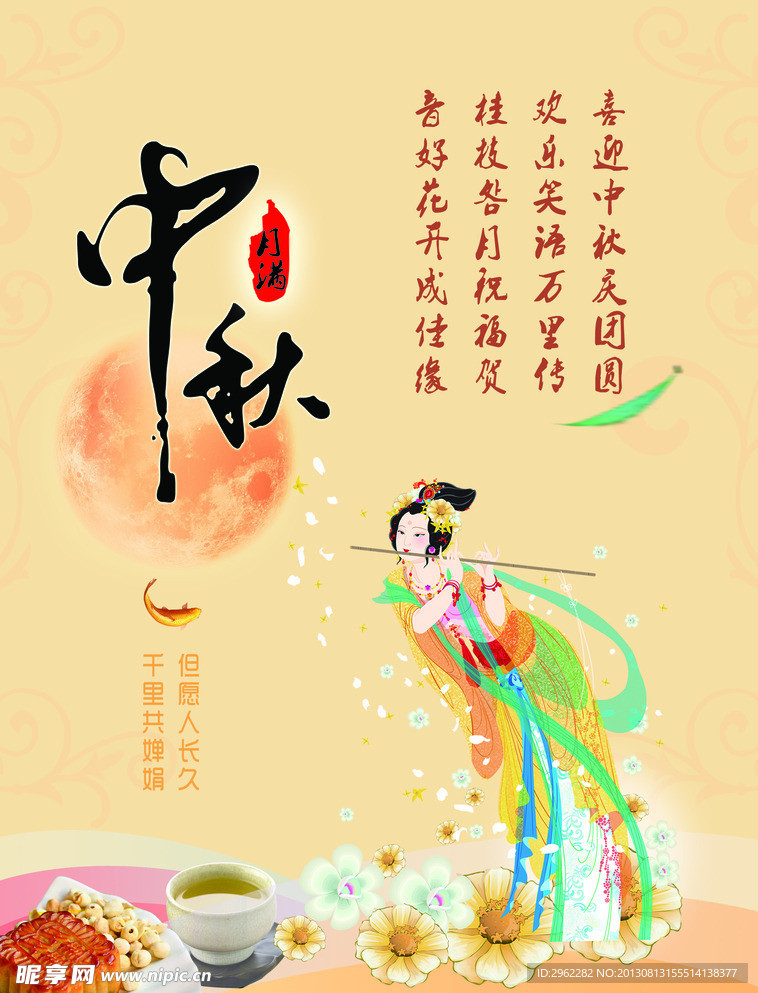 中秋
月满
喜迎中秋庆团圆
欢乐笑语万里传
桂枝咎月祝福贺
音好花开成佳缘
但愿人长久
千里共婵娟
昵享网 www.nipic.cn
ID:2962282 NO:20130813155514138377